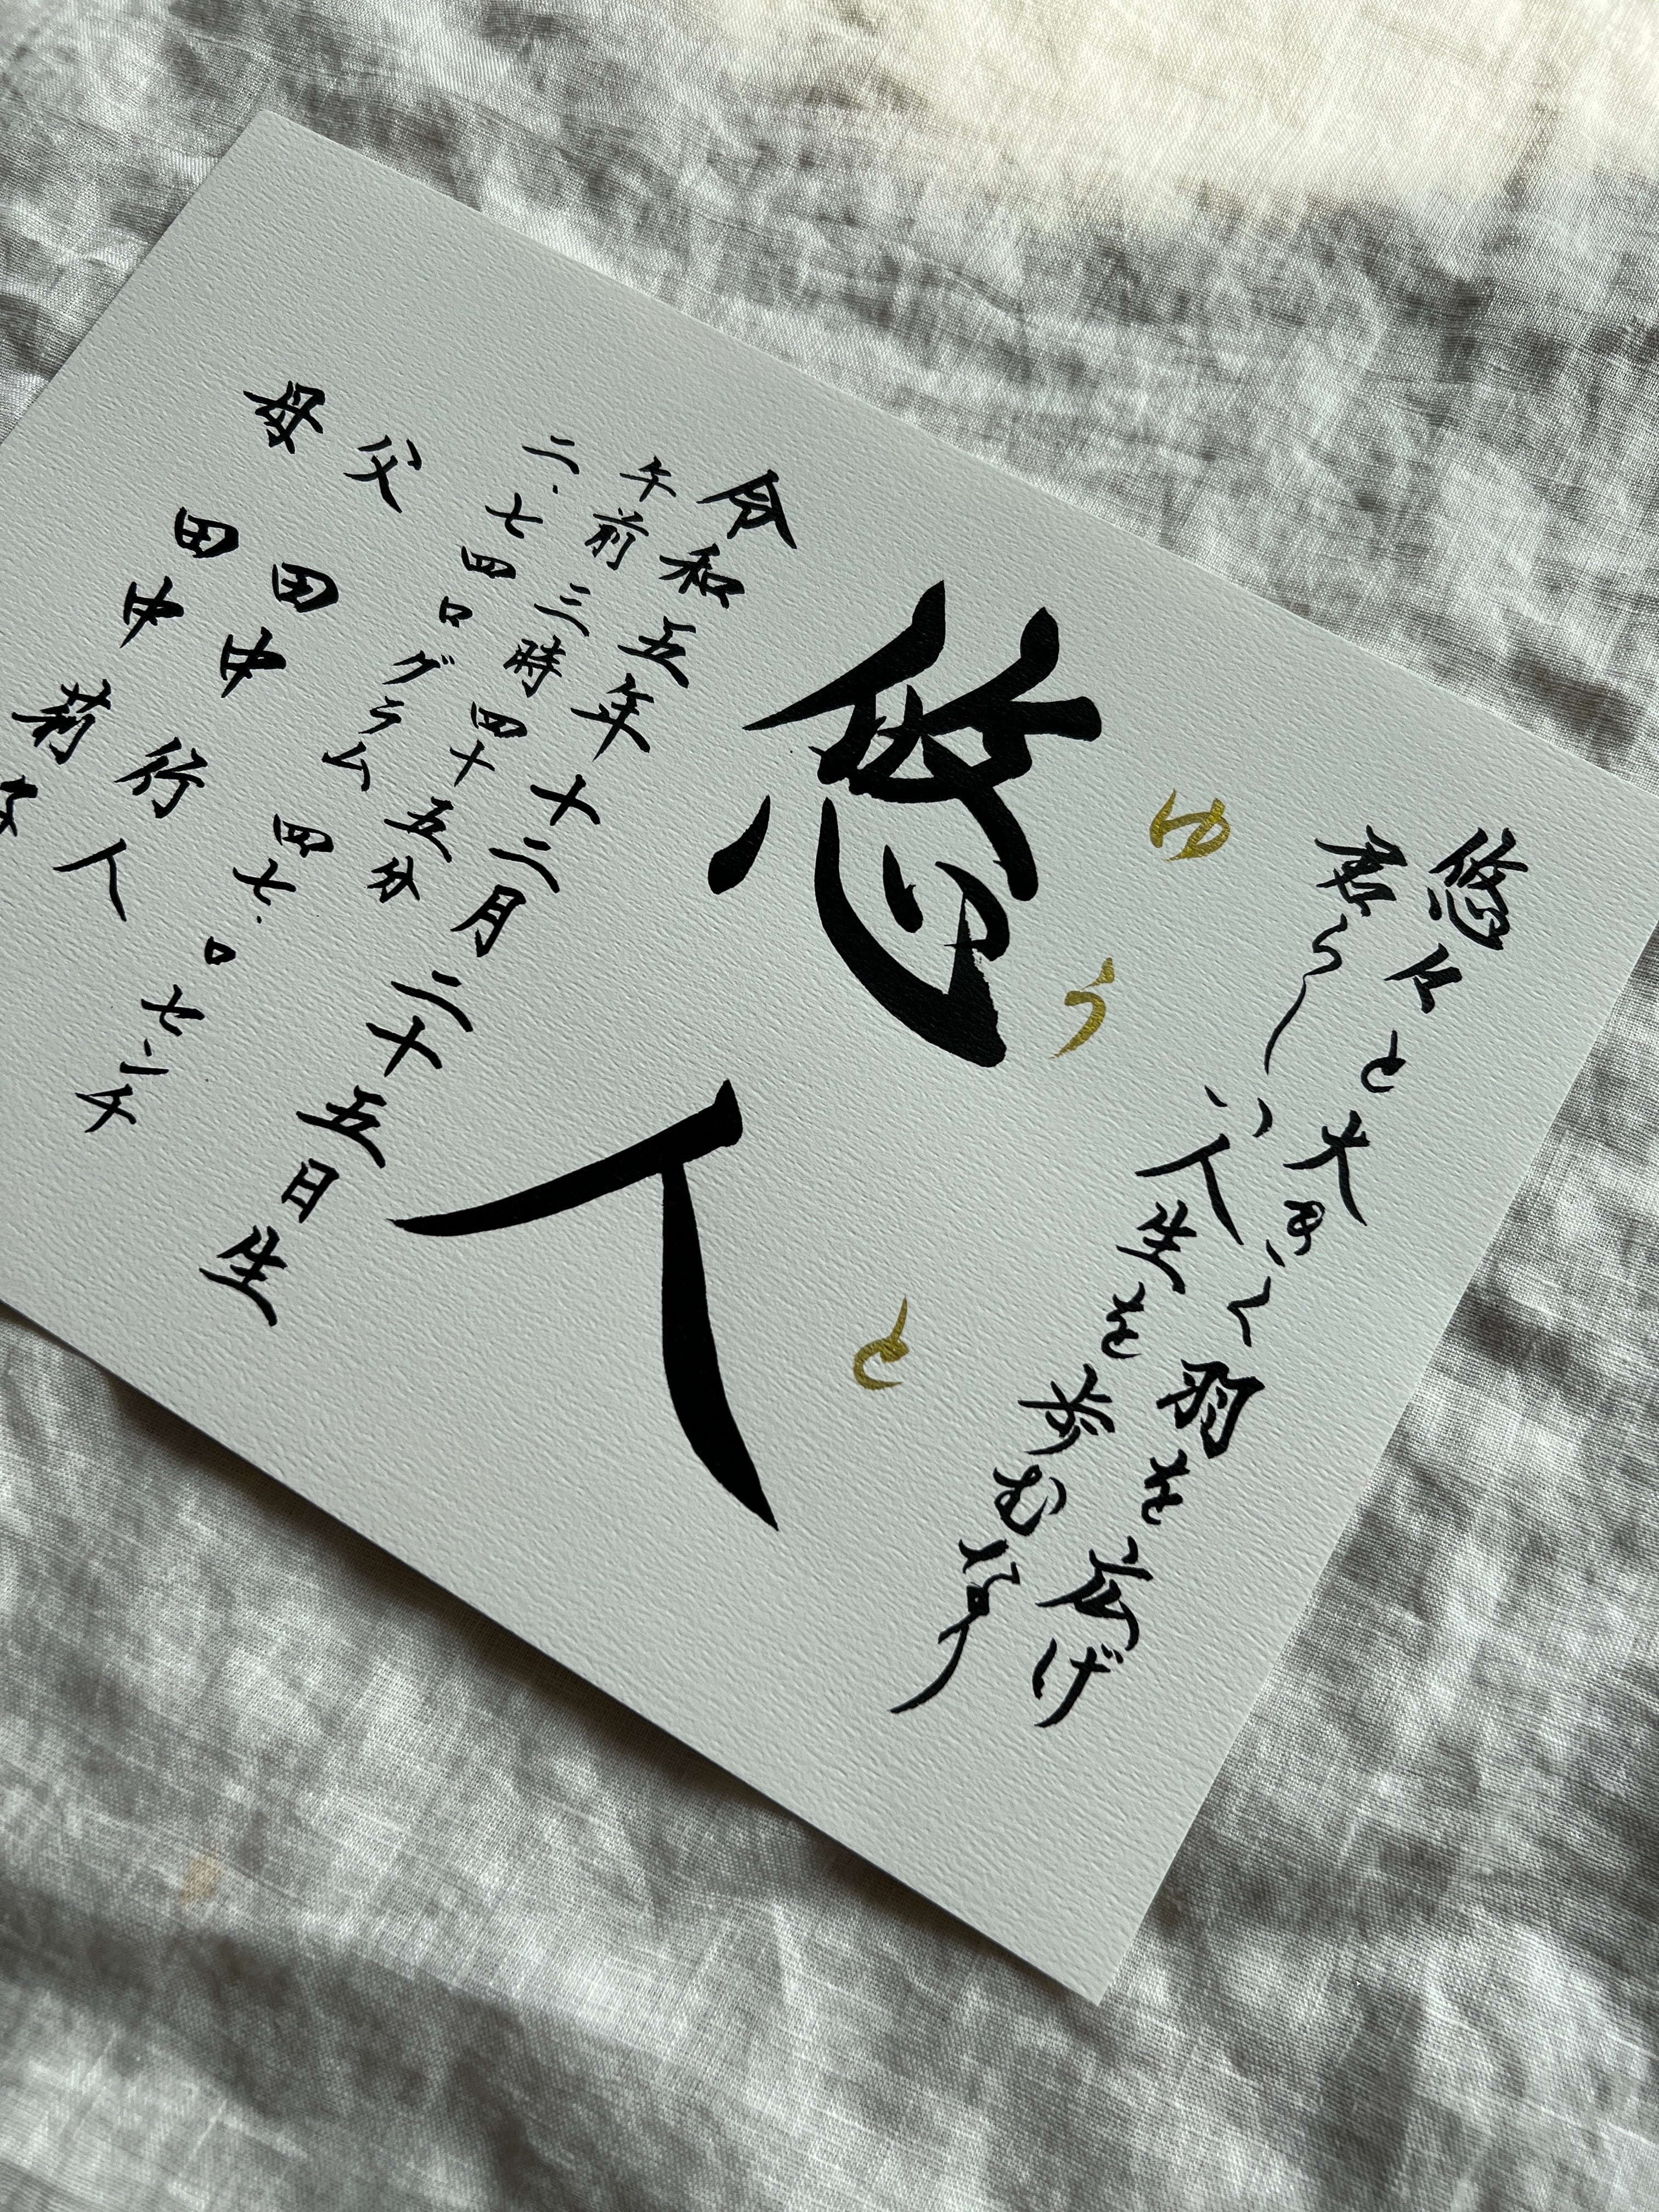 悠々と大きく羽を広げ
君らしい人生を歩む
ゆうと
悠人
令和五年十二月二十五日生
午前三時四十五分
二.七四〇グラム 四七.〇センチ
父 田中 行人
母 田中 莉